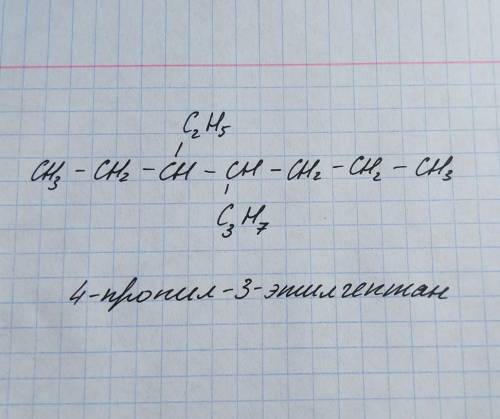 C₂H₅
CH₃ - CH₂ - CH - CH - CH₂ - CH₂ - CH₃
C₃H₇
4-пропил-3-этилгептан